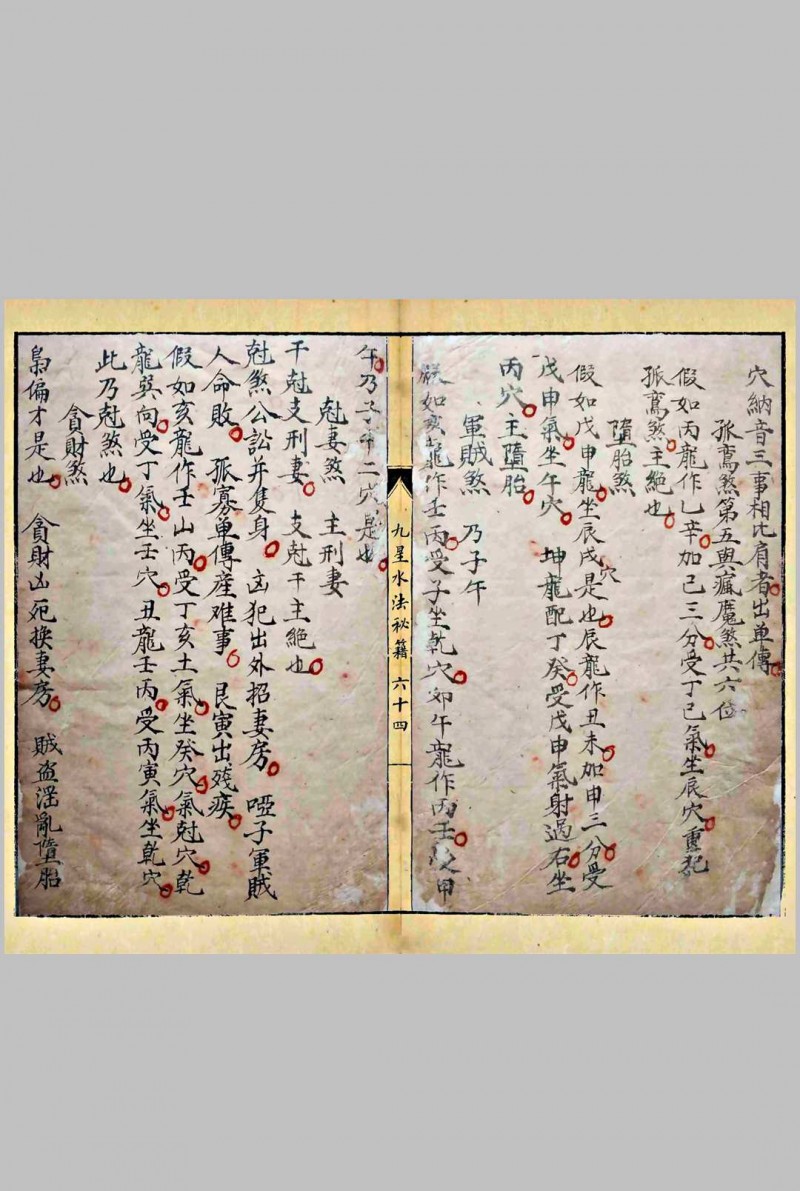 穴納音三事相比肩者出单傳
孤鸞煞第五與瘋魔煞共六位
假如丙龍作乙辛加己三分受丁己氣坐辰穴重犯
孤鸞煞主絕也
墮胎煞
假如戊申龍坐辰戌穴是也辰龍作丑未加申三分受
戊申氣坐午穴 坤龍配丁癸受戊申氣射過右坐
丙穴主墮胎
軍賊煞 乃子午
假如亥龍作壬丙受子坐乾穴卯午龍作丙壬 甲
九星水法祕籍 六十四
午乃子 二穴是也
尅妻煞 主刑妻
干尅支刑妻 支尅干主絕也
尅煞公訟并隻身 凶犯出外招妻房 啞子軍賊
人命敗 孤寡单傳產难事 艮寅出残疾
假如亥龍作壬山丙受丁亥土氣坐癸穴氣尅穴乾
龍巽向受丁氣坐壬穴 丑龍壬丙受丙寅氣坐乾穴
此乃尅煞也
貪財煞
梟偏才是也 貪財凶死換妻房 賊盗淫亂墮胎